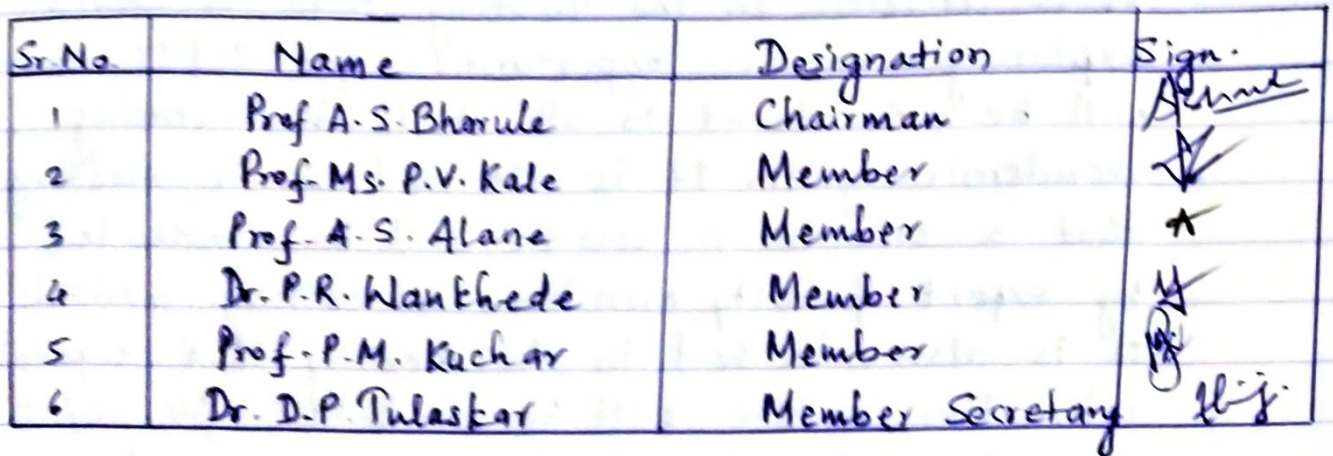 Sr. No. Name Designation Sign.
1 Prof. A. S. Bhorule Chairman
2 Prof. Ms. P. V. Kale Member
3 Prof. A. S. Alane Member
4 Dr. P. R. Wankhede Member
5 Prof. P. M. Kuchar Member
6 Dr. D. P. Tulaskar Member Secretary